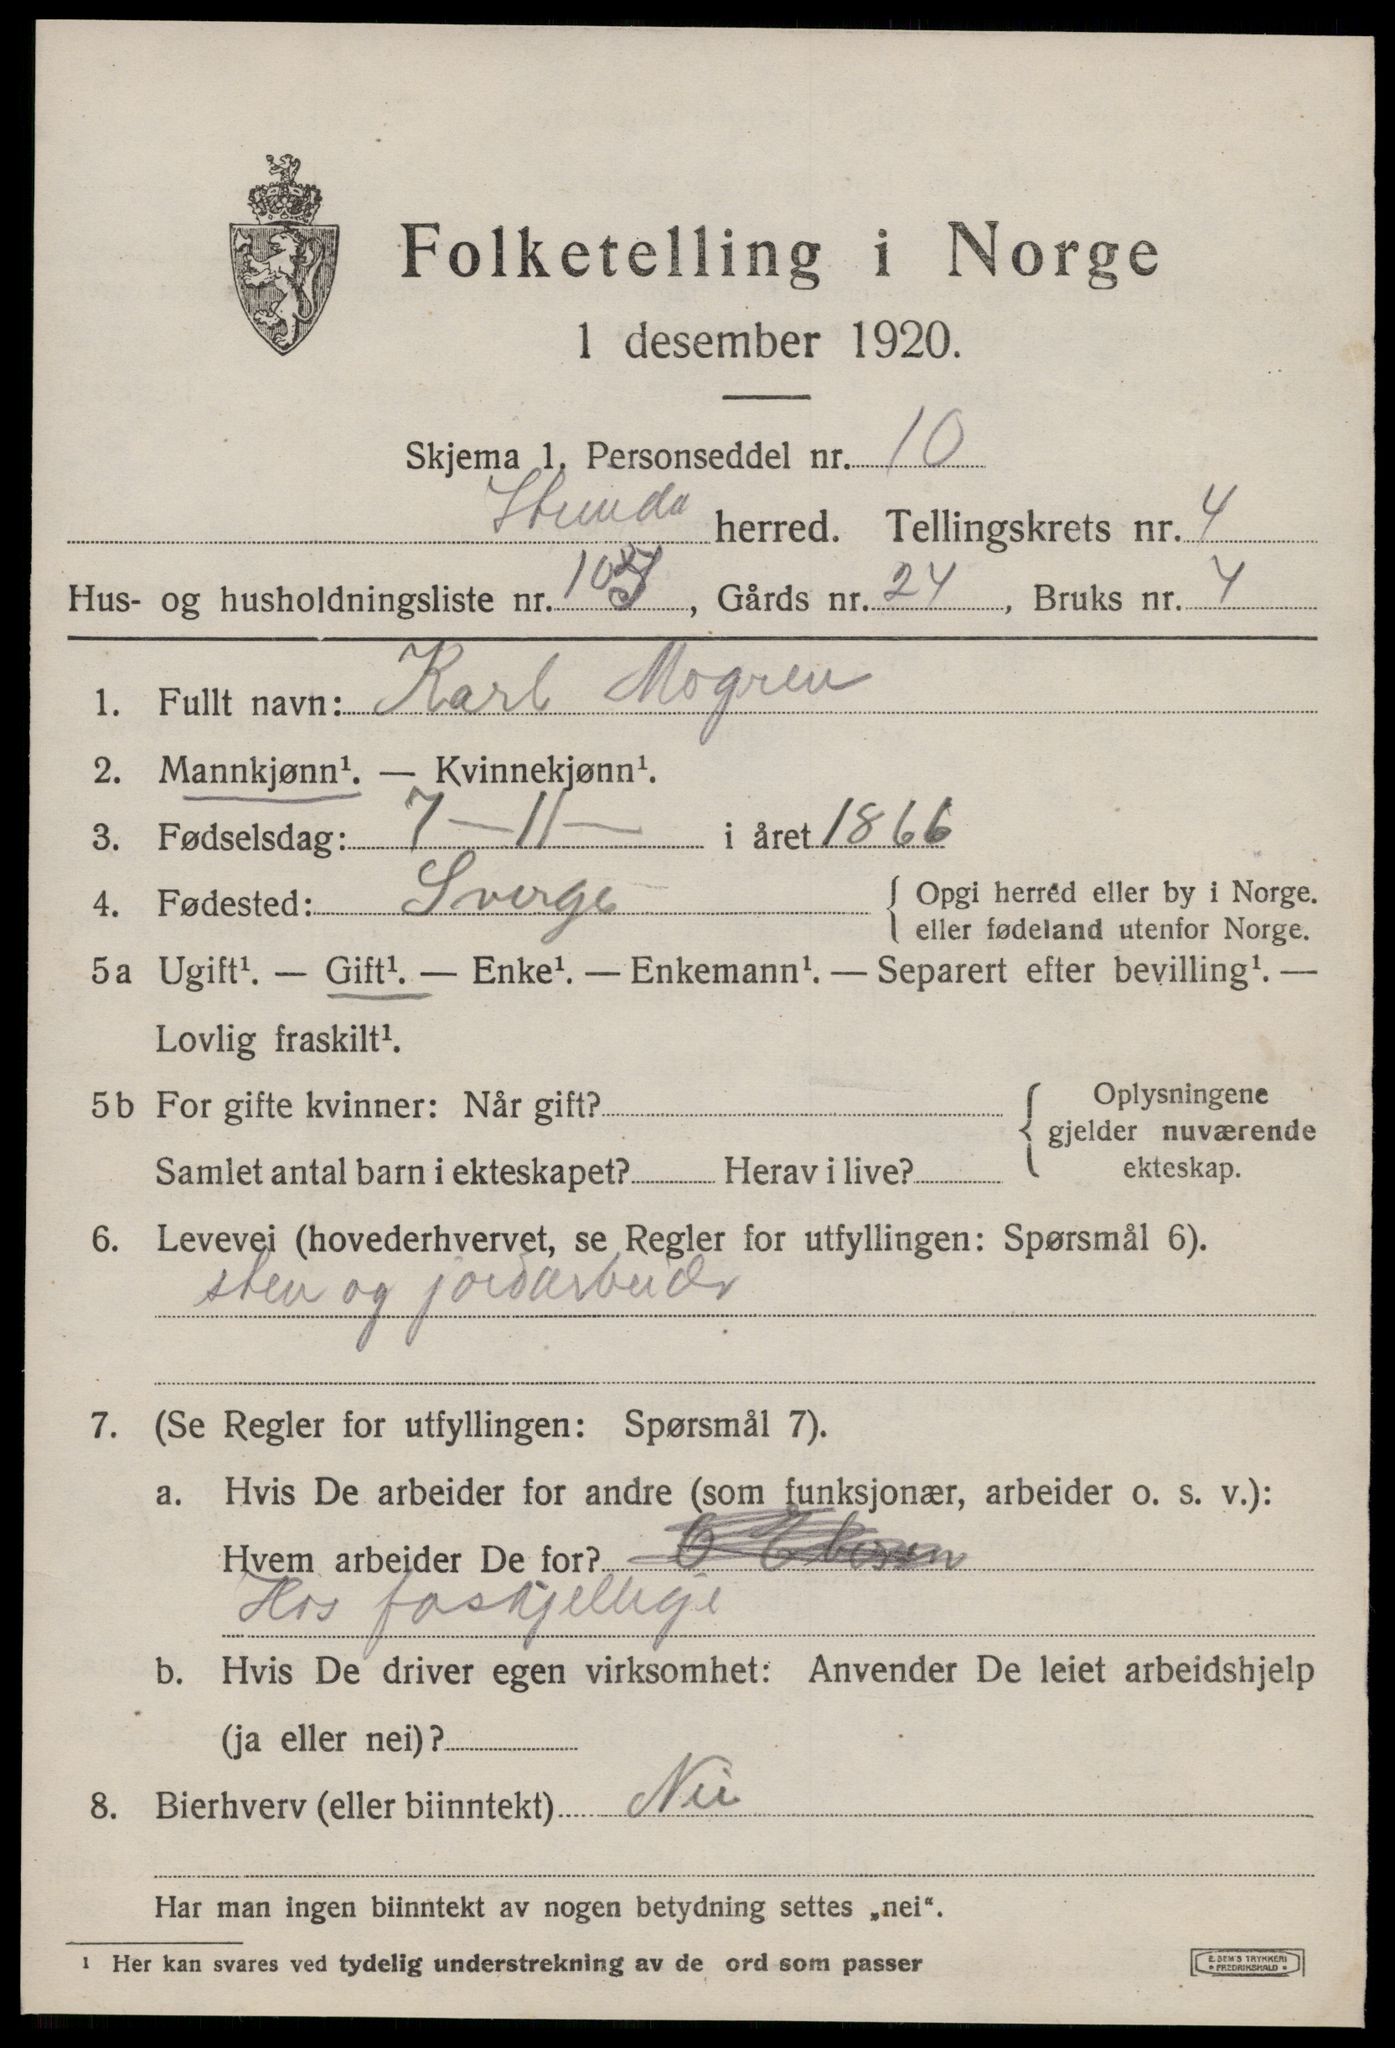 Folketelling i Norge
1 desember 1920.
Skjema 1. Personseddel nr. 10
Strinda herred. Tellingskrets nr. 4
Hus- og husholdningsliste nr. , Gårds nr. 24, Bruks nr. 4
1. Fullt navn: Karl Mogren
2. Mannkjønn¹. — Kvinnekjønn¹.
3. Fødselsdag: 7 — 11 — i året 1866
4. Fødested: Sverge { Opgi herred eller by i Norge.
eller fødeland utenfor Norge.
5a Ugift¹. — Gift¹. — Enke¹. — Enkemann¹. — Separert efter bevilling¹. —
Lovlig fraskilt¹.
5b For gifte kvinner: Når gift? { Oplysningene
gjelder nuværende
Samlet antal barn i ekteskapet? Herav i live? ekteskap.
6. Levevei (hovederhvervet, se Regler for utfyllingen: Spørsmål 6).
sten og jordarbeider
7. (Se Regler for utfyllingen: Spørsmål 7).
a. Hvis De arbeider for andre (som funksjonær, arbeider o. s. v.):
Hvem arbeider De for?
Hos foskjellige
b. Hvis De driver egen virksomhet: Anvender De leiet arbeidshjelp
(ja eller nei)?
8. Bierhverv (eller biinntekt) Nei
Har man ingen biinntekt av nogen betydning settes „nei“.
¹ Her kan svares ved tydelig understrekning av de ord som passer
E. SEM'S TRYKKERI
FREDRIKSHALD